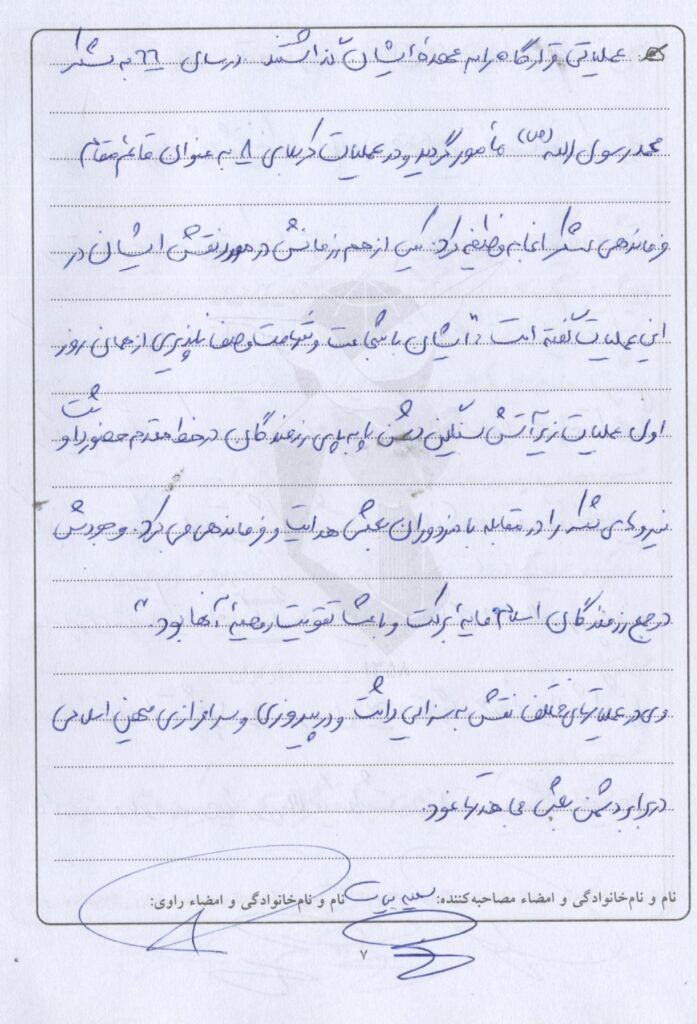 عملیاتی قرارگاه را به عهدهٔ ایشان گذاشتند. در سال ٦٦ به لشکر
محمد رسول الله (ص) مأمور گردید و در عملیات کربلای ۸ به عنوان قائم مقام
فرماندهی لشکر انجام وظیفه کرد. یکی از هم رزمانش در مورد نقش ایشان در
این عملیات گفته است: "ایشان با شجاعت و شهامت وصف ناپذیری از همان روز
اول عملیات زیر آتش سنگین دشمن پا به پای رزمندگان در خط مقدم حضور داشت و
نیروهای لشکر را در مقابله با مزدوران بعثی هدایت و فرماندهی می کرد. وجودش
در جمع رزمندگان اسلام مایهٔ برکت و باعث تقویت روحیهٔ آنها بود."
وی در عملیاتهای مختلف نقش به سزایی داشت و در پیروزی و سرافرازی میهن اسلامی
در برابر دشمن بعثی مجاهدتها نمود.
نام و نام‌خانوادگی و امضاء مصاحبه‌کننده: نام و نام‌خانوادگی و امضاء راوی:
۷